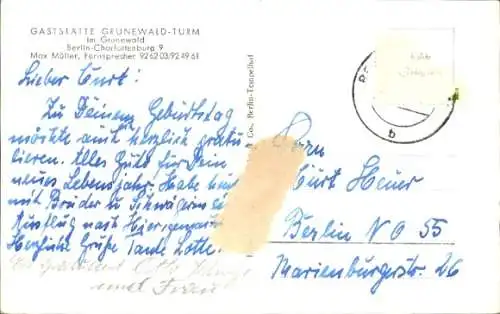 GASTSTÄTTE GRUNEWALD-TURM
im Grunewald
Berlin-Charlottenburg 9
Max Müller, Fernsprecher 92 62 03/92 49 61
Lieber Curt:
Zu Deinem Geburtstag
möchte auch herzlich gratu
lieren. Alles Gute für Dein
neues Lebensjahr. Habe
mit Bruder u. Schwägerin
Ausflug nach
Herzliche Grüße Tante Lotte.
und Frau
& Co., Berlin-Tempelhof
Herrn
Curt Heuer
Berlin NO 55
Marienburgerstr. 26
b